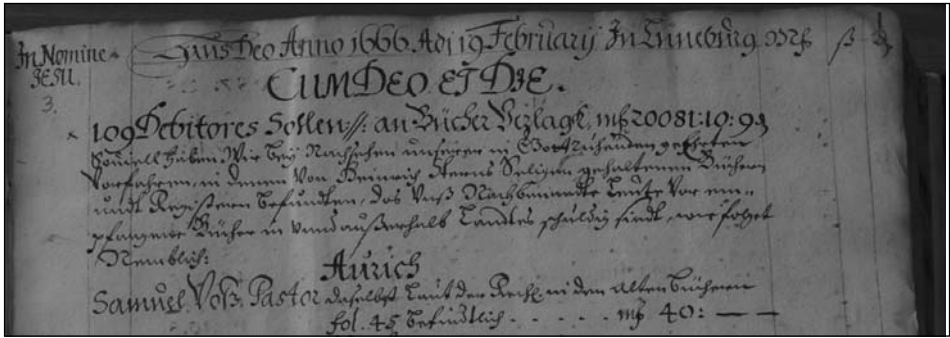 In Nomine
JESU.
3.
Laus Deo Anno 1666. Adj 19 Februarij In Lüneburg. mß ß ₰
CUM DEO ET DIE.
109 Debitores Sollen :/: an Bücher Verlagk, mß 20081:10:9 ₰
Soviell haben Wir bey Nachsehen unserer in Gott ruhenden geehrten
Vorfahren, in denen von Heinrich Sterns Seligen gehaltenen Büchern
undt Registern befundten, das Unß Nachbenandte Leute vor em-
pfangene Bücher in undt außerhalb Landtes schuldig sindt, wie folget
Nemblich:
Aurich
Samuel Voß. Pastor daselbst Laut der Rech. in den alten büchern
fol. 45 befindtlich - - - - - mß 40: — —